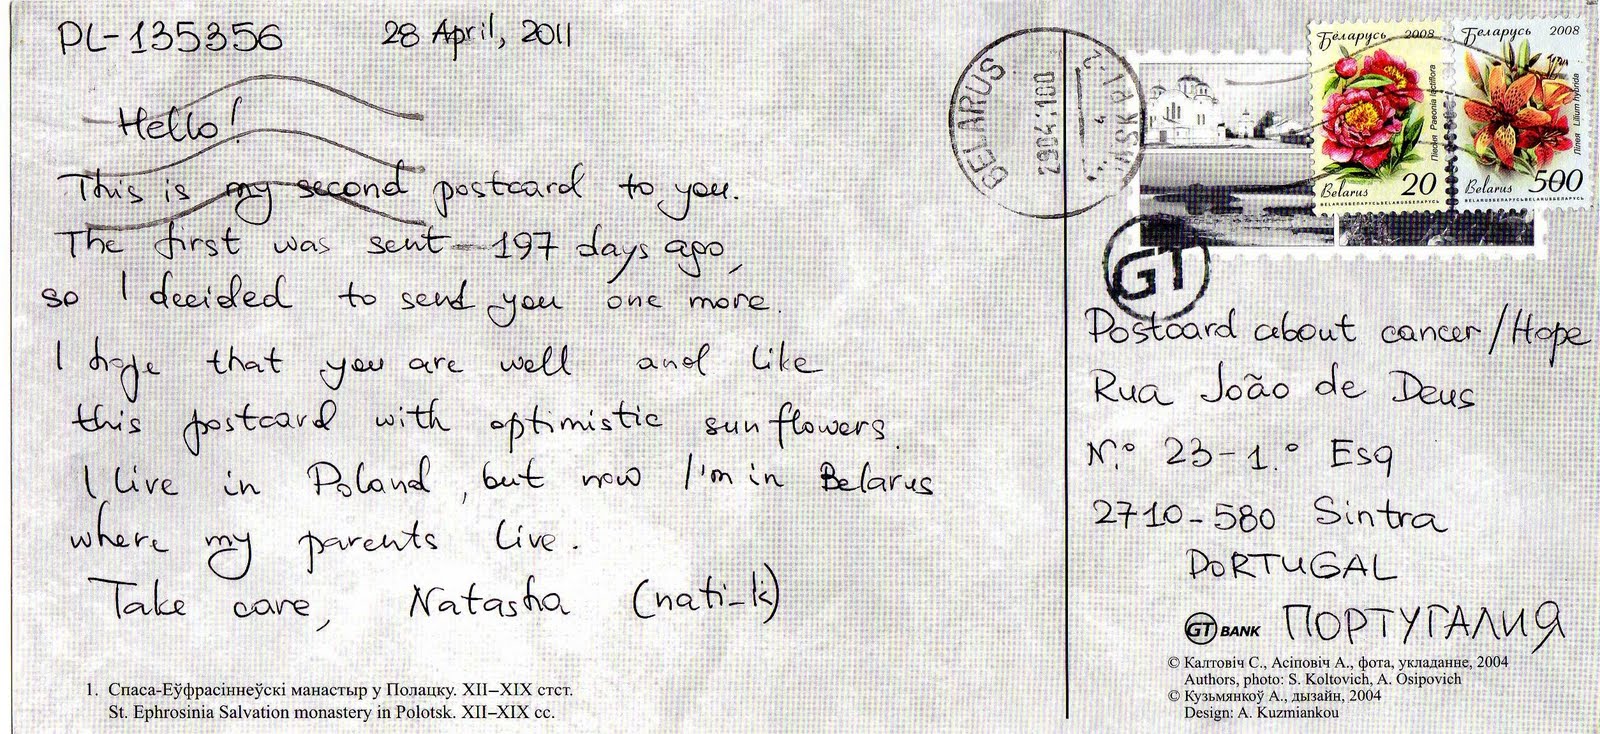 PL-135356 28 April, 2011
Hello!
This is my second postcard to you.
The first was sent 197 days ago,
so I decided to send you one more.
I hope that you are well and like
this postcard with optimistic sunflowers.
I live in Poland, but now I'm in Belarus
where my parents live.
Take care, Natasha (nati-k)
1. Спаса-Еўфрасіннеўскі манастыр у Полацку. XII–XIX стст.
St. Ephrosinia Salvation monastery in Polotsk. XII–XIX cc.
BELARUS
290411 00
Беларусь 2008
Півоня Paeonia lactiflora
Belarus 20
BELARUSБЕЛАРУСЬBELARUSБЕЛАРУСЬ
Беларусь 2008
Лілея Lilium hybrida
Belarus 500
BELARUSБЕЛАРУСЬBELARUSБЕЛАРУСЬ
GT
Postcard about cancer/Hope
Rua João de Deus
N.º 23-1.º Esq
2710-580 Sintra
PORTUGAL
GT BANK ПОРТУГАЛИЯ
© Калтовіч С., Асіповіч А., фота, укладанне, 2004
Authors, photo: S. Koltovich, A. Osipovich
© Кузьмянкоў А., дызайн, 2004
Design: A. Kuzmiankou